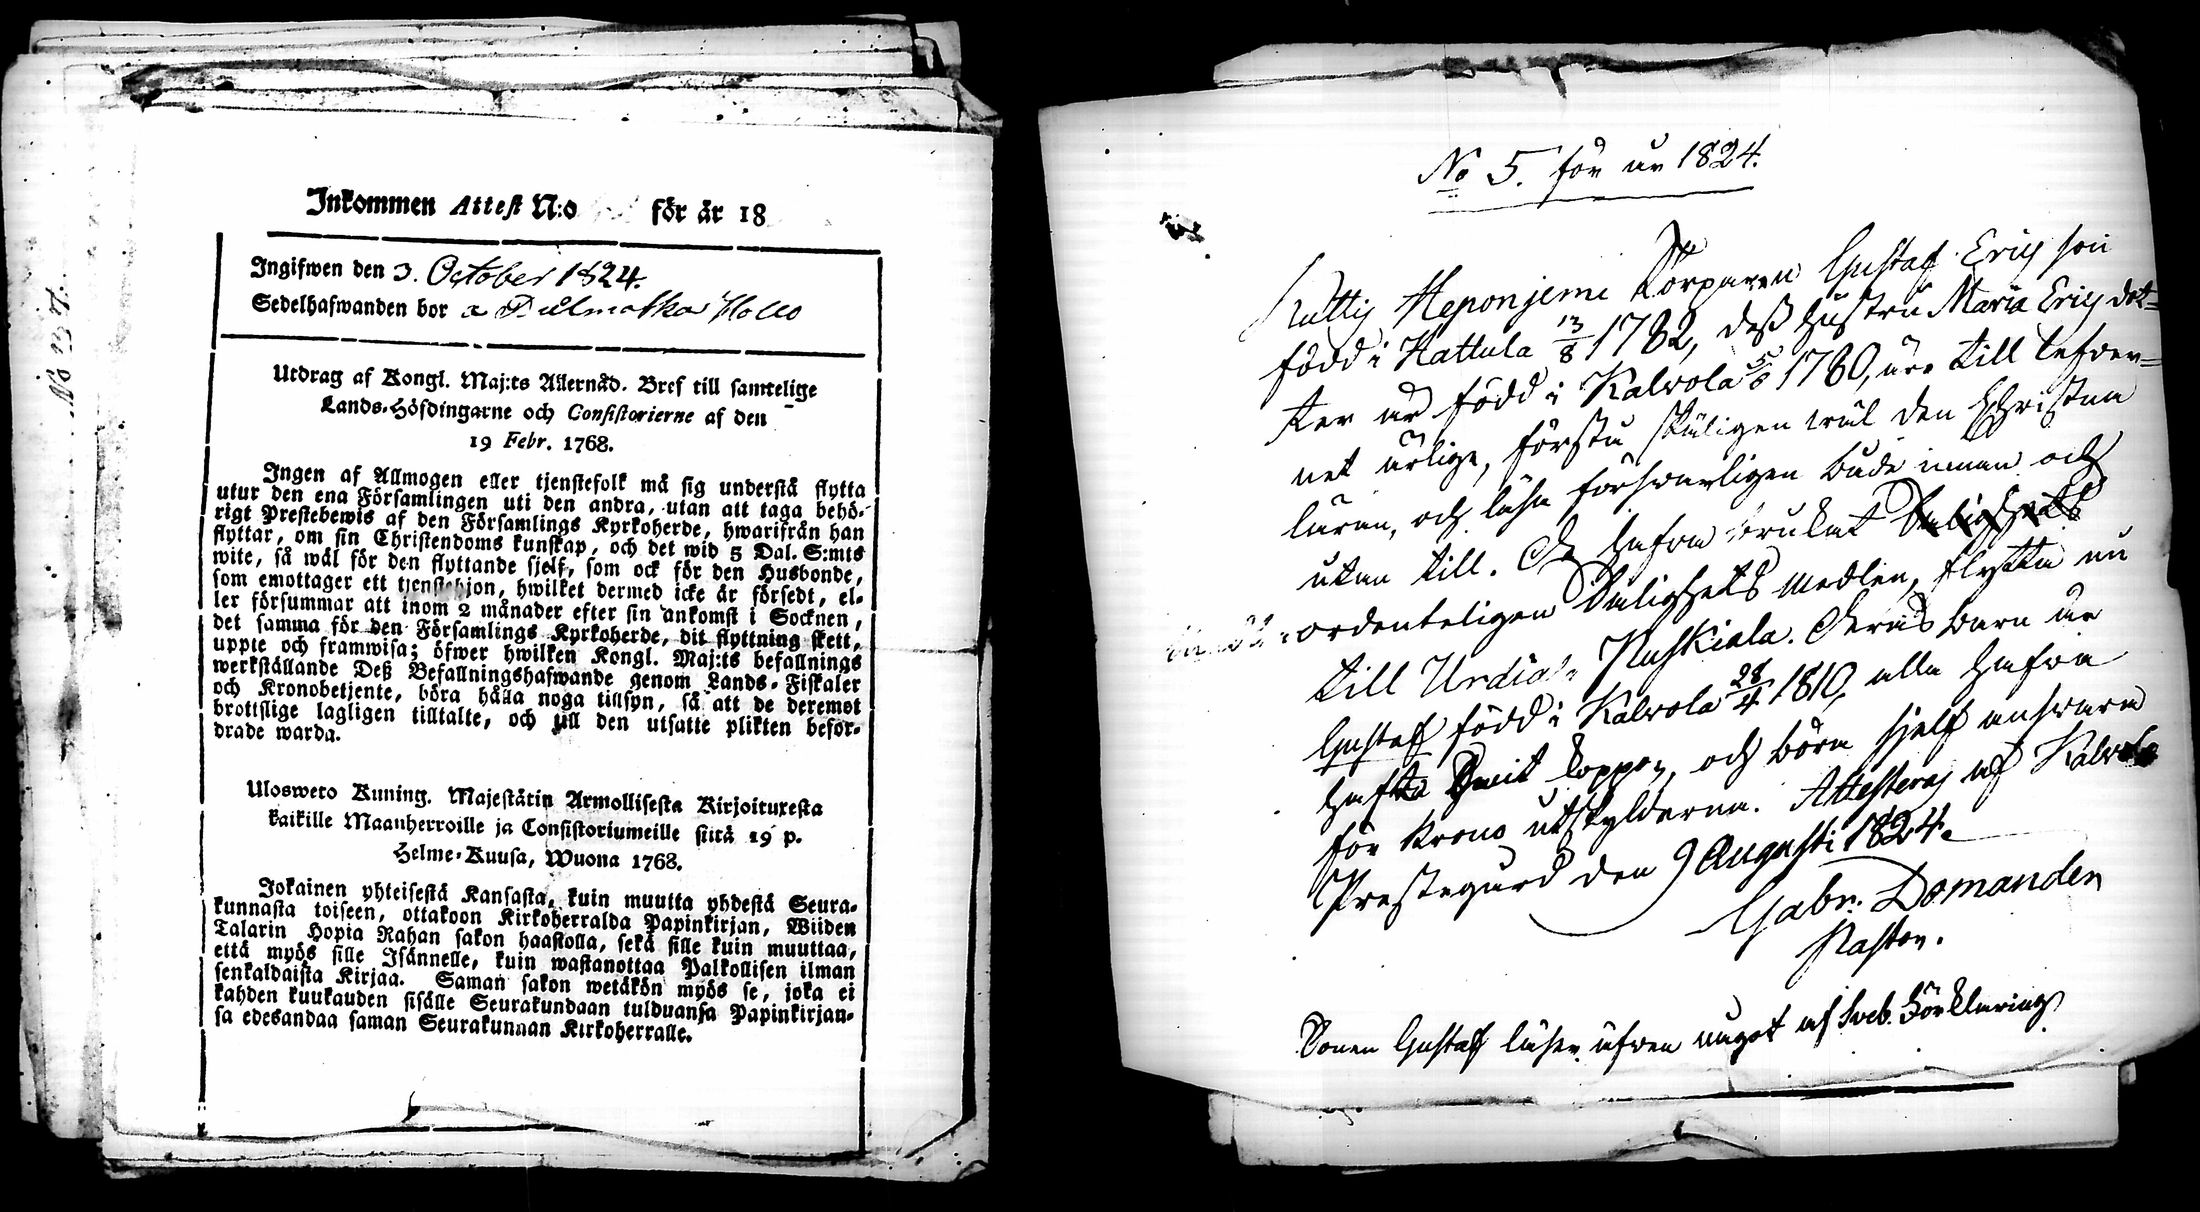 Inkommen Attest N:o för år 18
Ingifwen den 3. October 1824.
Sedelhafwanden bor
Utdrag af Kongl. Maj:ts Allernåd. Bref till samtelige
Lands-Höfdingarne och Consistorierne af den
19 Febr. 1768.
Ingen af Allmogen eller tjenstefolk må sig understå flytta
utur den ena Församlingen uti den andra, utan att taga behö-
rigt Prestebewis af den Församlings Kyrkoherde, hwarifrån han
flyttar, om sin Christendoms kunskap, och det wid 5 Dal. S:mts
wite, så wäl för den flyttande sjelf, som ock för den Husbonde,
som emottager ett tjenstehjon, hwilket dermed icke är försedt, el-
ler försummar att inom 2 månader efter sin ankomst i Socknen,
det samma för den Församlings Kyrkoherde, dit flyttning skett,
uppte och framwisa; öfwer hwilken Kongl. Maj:ts befallnings
werkställande Deß Befallningshafwande genom Lands-Fiskaler
och Kronobetjente, böra hålla noga tillsyn, så att de deremot
brottslige lagligen tilltalte, och till den utsatte plikten befor-
drade warda.
Ulosweto Kuning. Majestätin Armollisesta Kirjoituxesta
kaikille Maanherroille ja Consistoriumeille siitä 19 p.
Helme-Kuusa, Wuona 1768.
Jokainen yhteisestä Kansasta, kuin muutta yhdestä Seura-
kunnasta toiseen, ottakoon Kirkoherralda Papinkirjan, Wiiden
Talarin Hopia Rahan sakon haastolla, sekä sille kuin muuttaa,
että myös sille Isännelle, kuin wastanottaa Palkollisen ilman
senkaldaista Kirjaa. Saman sakon wetäkön myös se, joka ei
kahden kuukauden sisälle Seurakundaan tulduansa Papinkirjan-
sa edesandaa saman Seurakunnan Kirkoherralle.
No 5. för år 1824.
Heponjemi Torparen Gustaf Ericsson
född i Hattula 13/8 1782, deß hustru Maria Ericsdot-
ter är född i Kalvola 1780, äro till lefver-
net ärlige, förstå skäligen wäl den Christna
läran, och läsa försvarligen både innan och
utan till. De hafva brukat
ordenteligen Salighets medlen, flytta nu
till Urdiala Nuskiala. Deras barn är
Gustaf född i Kalvola 28/4 1810, alla hafva
haft koppor, och böra sjelf ansvara
för krono utskylderna. Attesteras af Kalvola
Prestegård den 9 Augusti 1824.
Gabr. Domander
Pastor.
Sonen Gustaf läser äfven något af Sveb. Förklaring